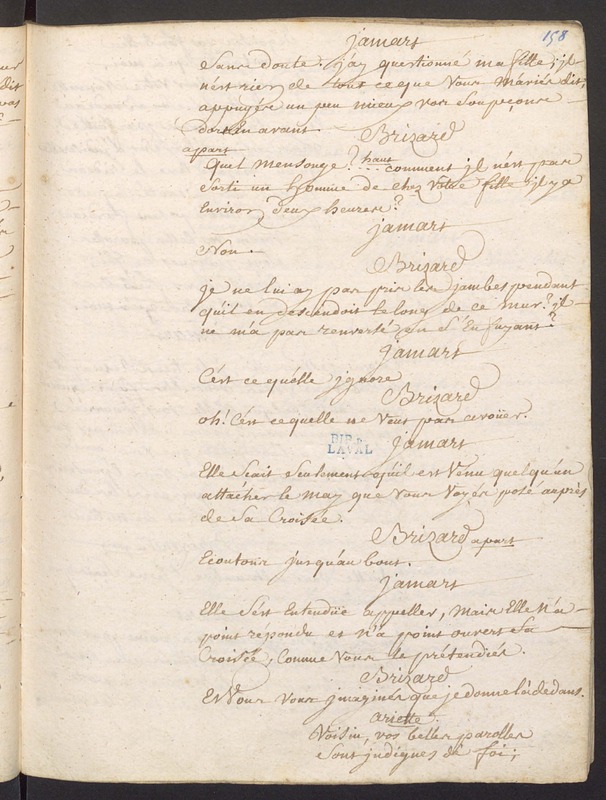 158
jamars
Sans doute. j'ay questionné ma fille; jl
nést rien de tout ce que Vous m'aviés dit,
appuyés un peu mieux vos soupçons
dorénavant.
Brizard
apart
Quel mensonge? haut ... comment jl n'ést pas
sorti un homme de chez Votre fille jl y a
Environ deux heures?
jamars
Non.
Brizard
je ne lui ay pas pris les jambes pendant
qu'il en descendoit le long de ce mur? jl
ne m'a pas renversé en s'Enfuyant?
jamars
C'ést ce qu'élle jgnore
Brizard
oh! C'ést ce qu'elle ne Veut pas avoüer.
BIB. DE
LAVAL
jamars
Elle sçait seulement qu'il est Venu quelqu'un
attacher le may que Vous Voyés posé auprès
de Sa Croisée.
Brizard apart
Ecoutons jusqu'au bout.
jamars
Elle s'ést Entendüe appeller, mais Elle n'a
point répondu et n'a point ouvert Sa
Croisée, Comme Vous le prétendiés.
Brizard
Et Vous Vous jmaginés que je donne là dedans.
ariette.
Voisin, vos belles parolles
Sont jndignes de foi;